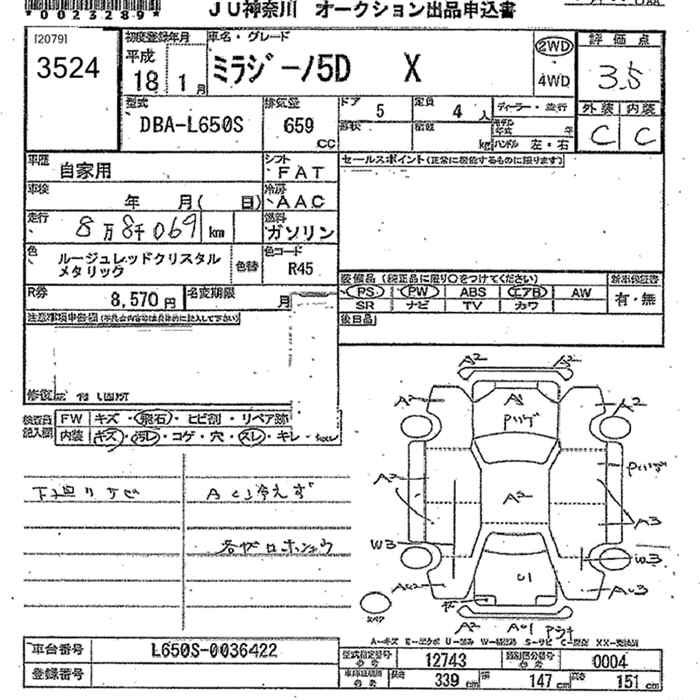 *0023289*
JU神奈川 オークション出品申込書
[2079]
3524
初度登録年月
平成
18 1月
車名・グレード
ミラジーノ5D X
2WD
4WD
評価点
3.5
型式
DBA-L650S
排気量
659
CC
ドア 5
定員 4人
ディーラー・並行
形状
積載
kg
モデル年式 年
ハンドル 左・右
外装 内装
C C
車歴
自家用
シフト
FAT
セールスポイント(正常に機能するものに限ります)
車検
年 月( 日)
冷房
AAC
走行
8万8千069 km
燃料
ガソリン
色
ルージュレッドクリスタル
メタリック
色替
色コード
R45
R券
8,570円
名変期限
月
装備品(純正品に限り○をつけてください)
PS PW ABS エアB AW
SR ナビ TV カワ
新車保証書
有・無
後日品
注意事項申告欄
検査員
記入欄
FW キズ・飛石・ヒビ割・リペア跡
内装 キズ・汚レ・コゲ・穴・スレ・キレ
下廻りサビ
ACシ冷えず
A2 A2
A2 A2
A2
A2
A3
W3 W3
U1
A2 A01
車台番号
L650S-0036422
登録番号
型式指定番号
12743
類別区分番号
0004
長さ 339cm
幅 147cm
高さ 151cm